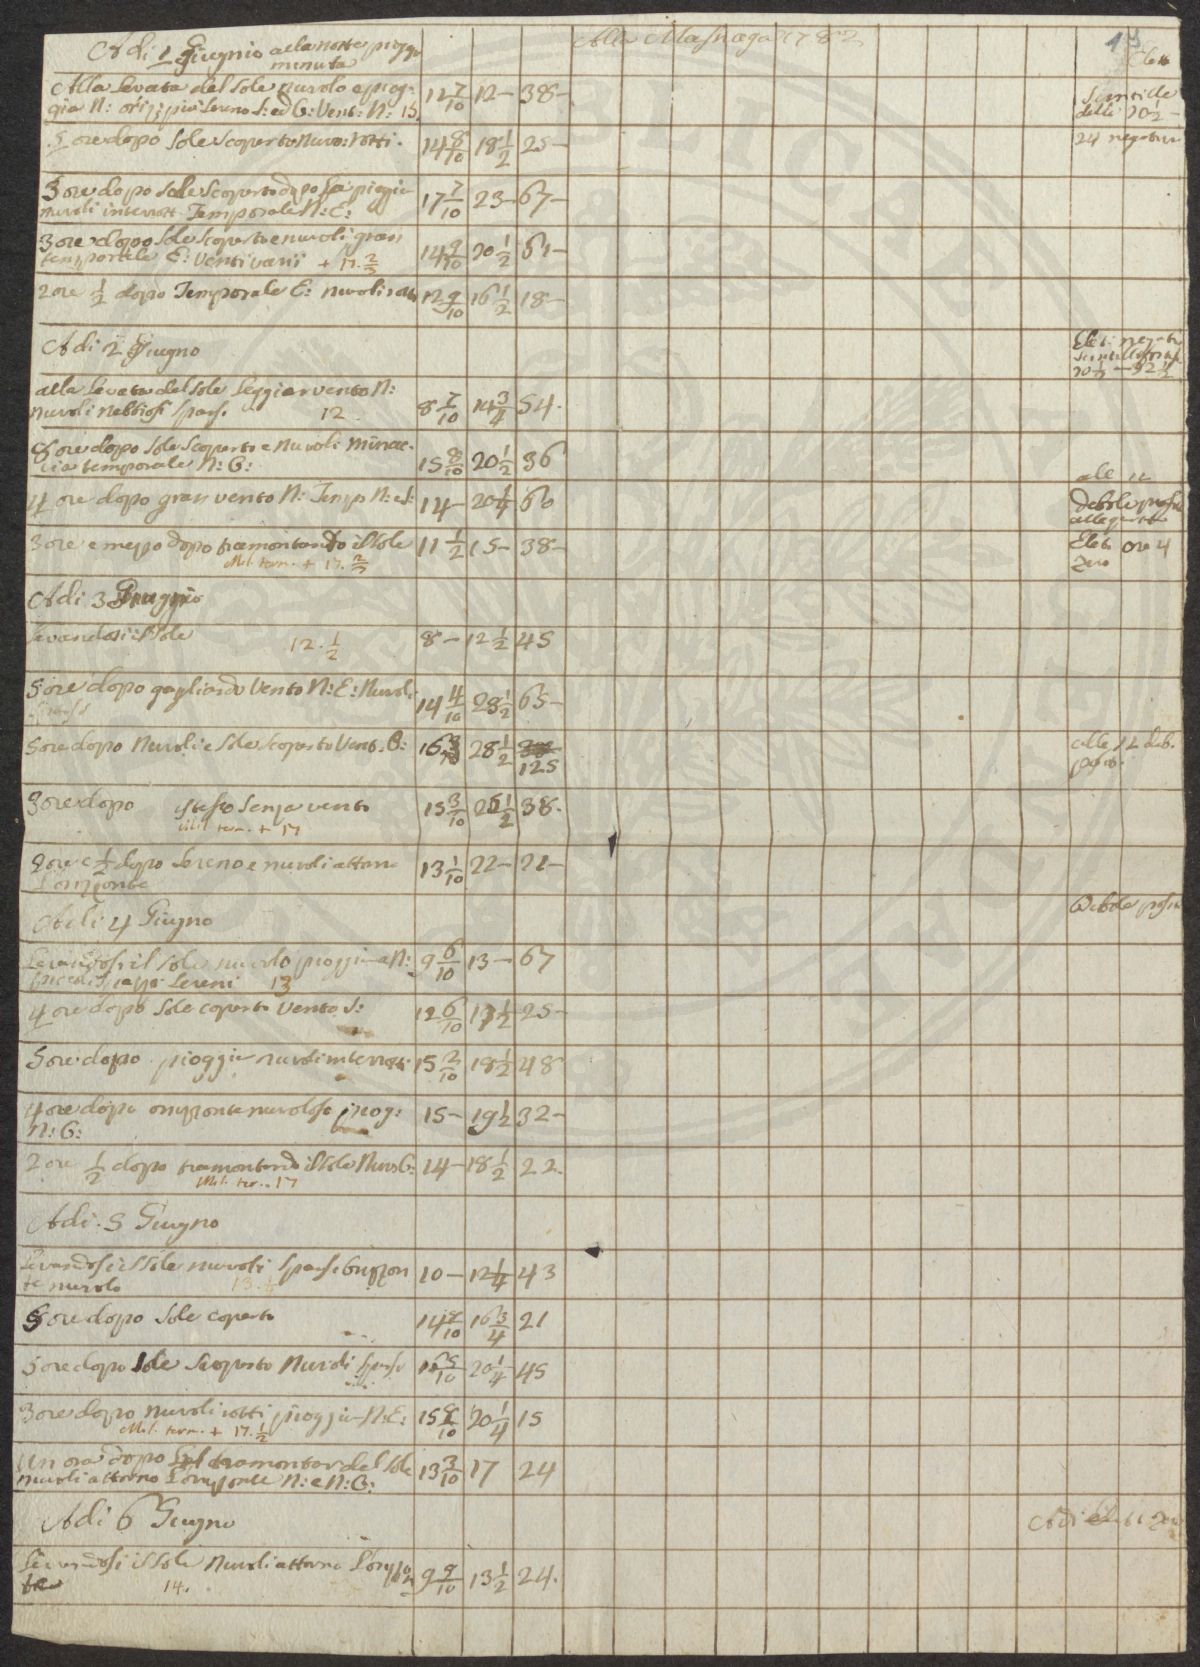 Alla Masnaga 1782
Adi 1 Giugnio alla notte piogga
minuta
Elett
Alla levata del sole nuvolo e piog-
gia N: oriz: piu sereno S: ed O: Vent: N: 15. 12 7/10 12- 38-
scintille
delli 20 1/2 -
5 ore dopo sole scoperto nuvo: rotti. 14 8/10 18 1/2 25-
24 negative
3 ore dopo sole scoperto dopo la pioggia
nuvoli interrott Temporale N: E: 17 7/10 23- 67-
3 ore dopo sole scoperto e nuvoli gran
temporale E: Venti varii + 17. 2/3 14 9/10 20 1/2 61-
2 ore 1/2 dopo Temporale E: nuvoli rotti 12 9/10 16 1/2 18-
Adi 2 Giugno
Elet: negati
alla levata del sole leggier vento N:
nuvoli nebbiosi sparsi. 12 8 7/10 14 3/4 54.
8 ore dopo sole scoperto e nuvoli minac-
cia temporale N: O: 15 8/10 20 1/2 36
4 ore dopo gran vento N: Temp N: e S: 14- 20 1/4 60
alle 12
debole
3 ore e mezzo dopo tramontando il sole 11 1/2 15- 38-
Mil. term. + 17. 2/3
Elet: ore 4
zero
Adi 3 Giugnio
levandosi il sole 12. 1/2 8- 12 1/2 45
5 ore dopo gagliardo Vento N: E: Nuvoli
sparsi 14 4/10 28 1/2 65-
5 ore dopo Nuvoli e sole scoperto Vent. O: 16 28 1/2 125
alle 12 deb.
posit.
3 ore dopo istesso senza vento 15 3/10 25 1/2 38.
Mil. ter. + 17
2 ore e 1/2 dopo sereno e nuvoli attorno
l'orizzonte 13 1/10 22- 21-
Adi 4 Giugno
debole posit
levandosi il sole nuvolo pioggia a N:
sereni 13 9 6/10 13- 67
4 ore dopo sole coperto Vento S: 12 6/10 17 1/2 25-
5 ore dopo pioggia nuvoli interrotti 15 2/10 18 1/2 48
4 ore dopo orizzonte nuvoloso piog:
N: O: 15- 19 1/2 32-
2 ore 1/2 dopo tramontando il sole Nuvo: 14- 18 1/2 22.
Mil. ter. 17
Adi 5 Giugno
levandosi il sole nuvoli sparsi orizzon
te nuvolo 13. 10- 12 1/4 43
5 ore dopo sole coperto 14 8/10 16 3/4 21
5 ore dopo sole scoperto Nuvoli sparsi 20 1/4 45
3 ore dopo nuvoli rotti pioggia N: E: 15 8/10 20 1/4 15
Mil. term. + 17. 1/2
un ora dopo tramontar del sole
nuvoli attorno l'orizzonte N: e N: O: 13 3/10 17 24
Adi 6 Giugno
Adi elet: zero
levandosi il sole nuvoli attorno l'orizzon
te 14. 9 9/10 13 1/2 24.